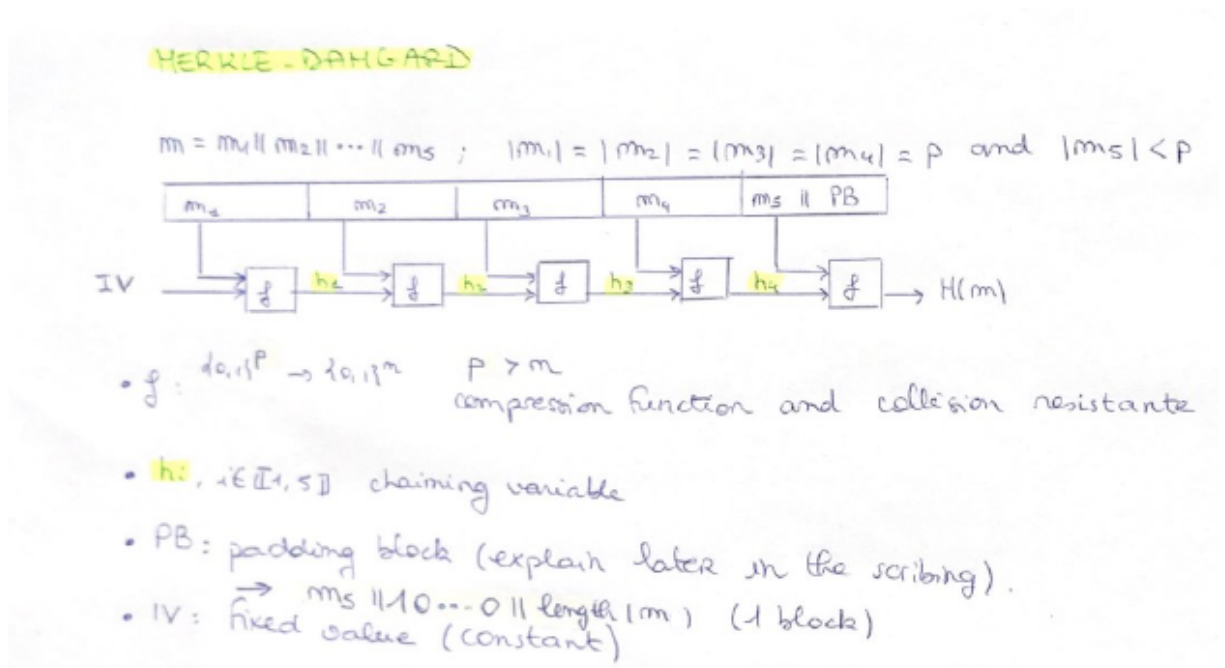 MERKLE-DAMGARD
m = m1 || m2 || ... || m5 ; |m1| = |m2| = |m3| = |m4| = p and |m5| < p
m1 m2 m3 m4 m5 || PB
IV f h1 f h2 f h3 f h4 f H(m)
• f: {0,1}^p → {0,1}^n p > n
compression function and collision resistante
• hi, i∈⟦1,5⟧ chaining variable
• PB: padding block (explain later in the scribing).
→ m5 || 10...0 || length(m) (1 block)
• IV: fixed value (constant)